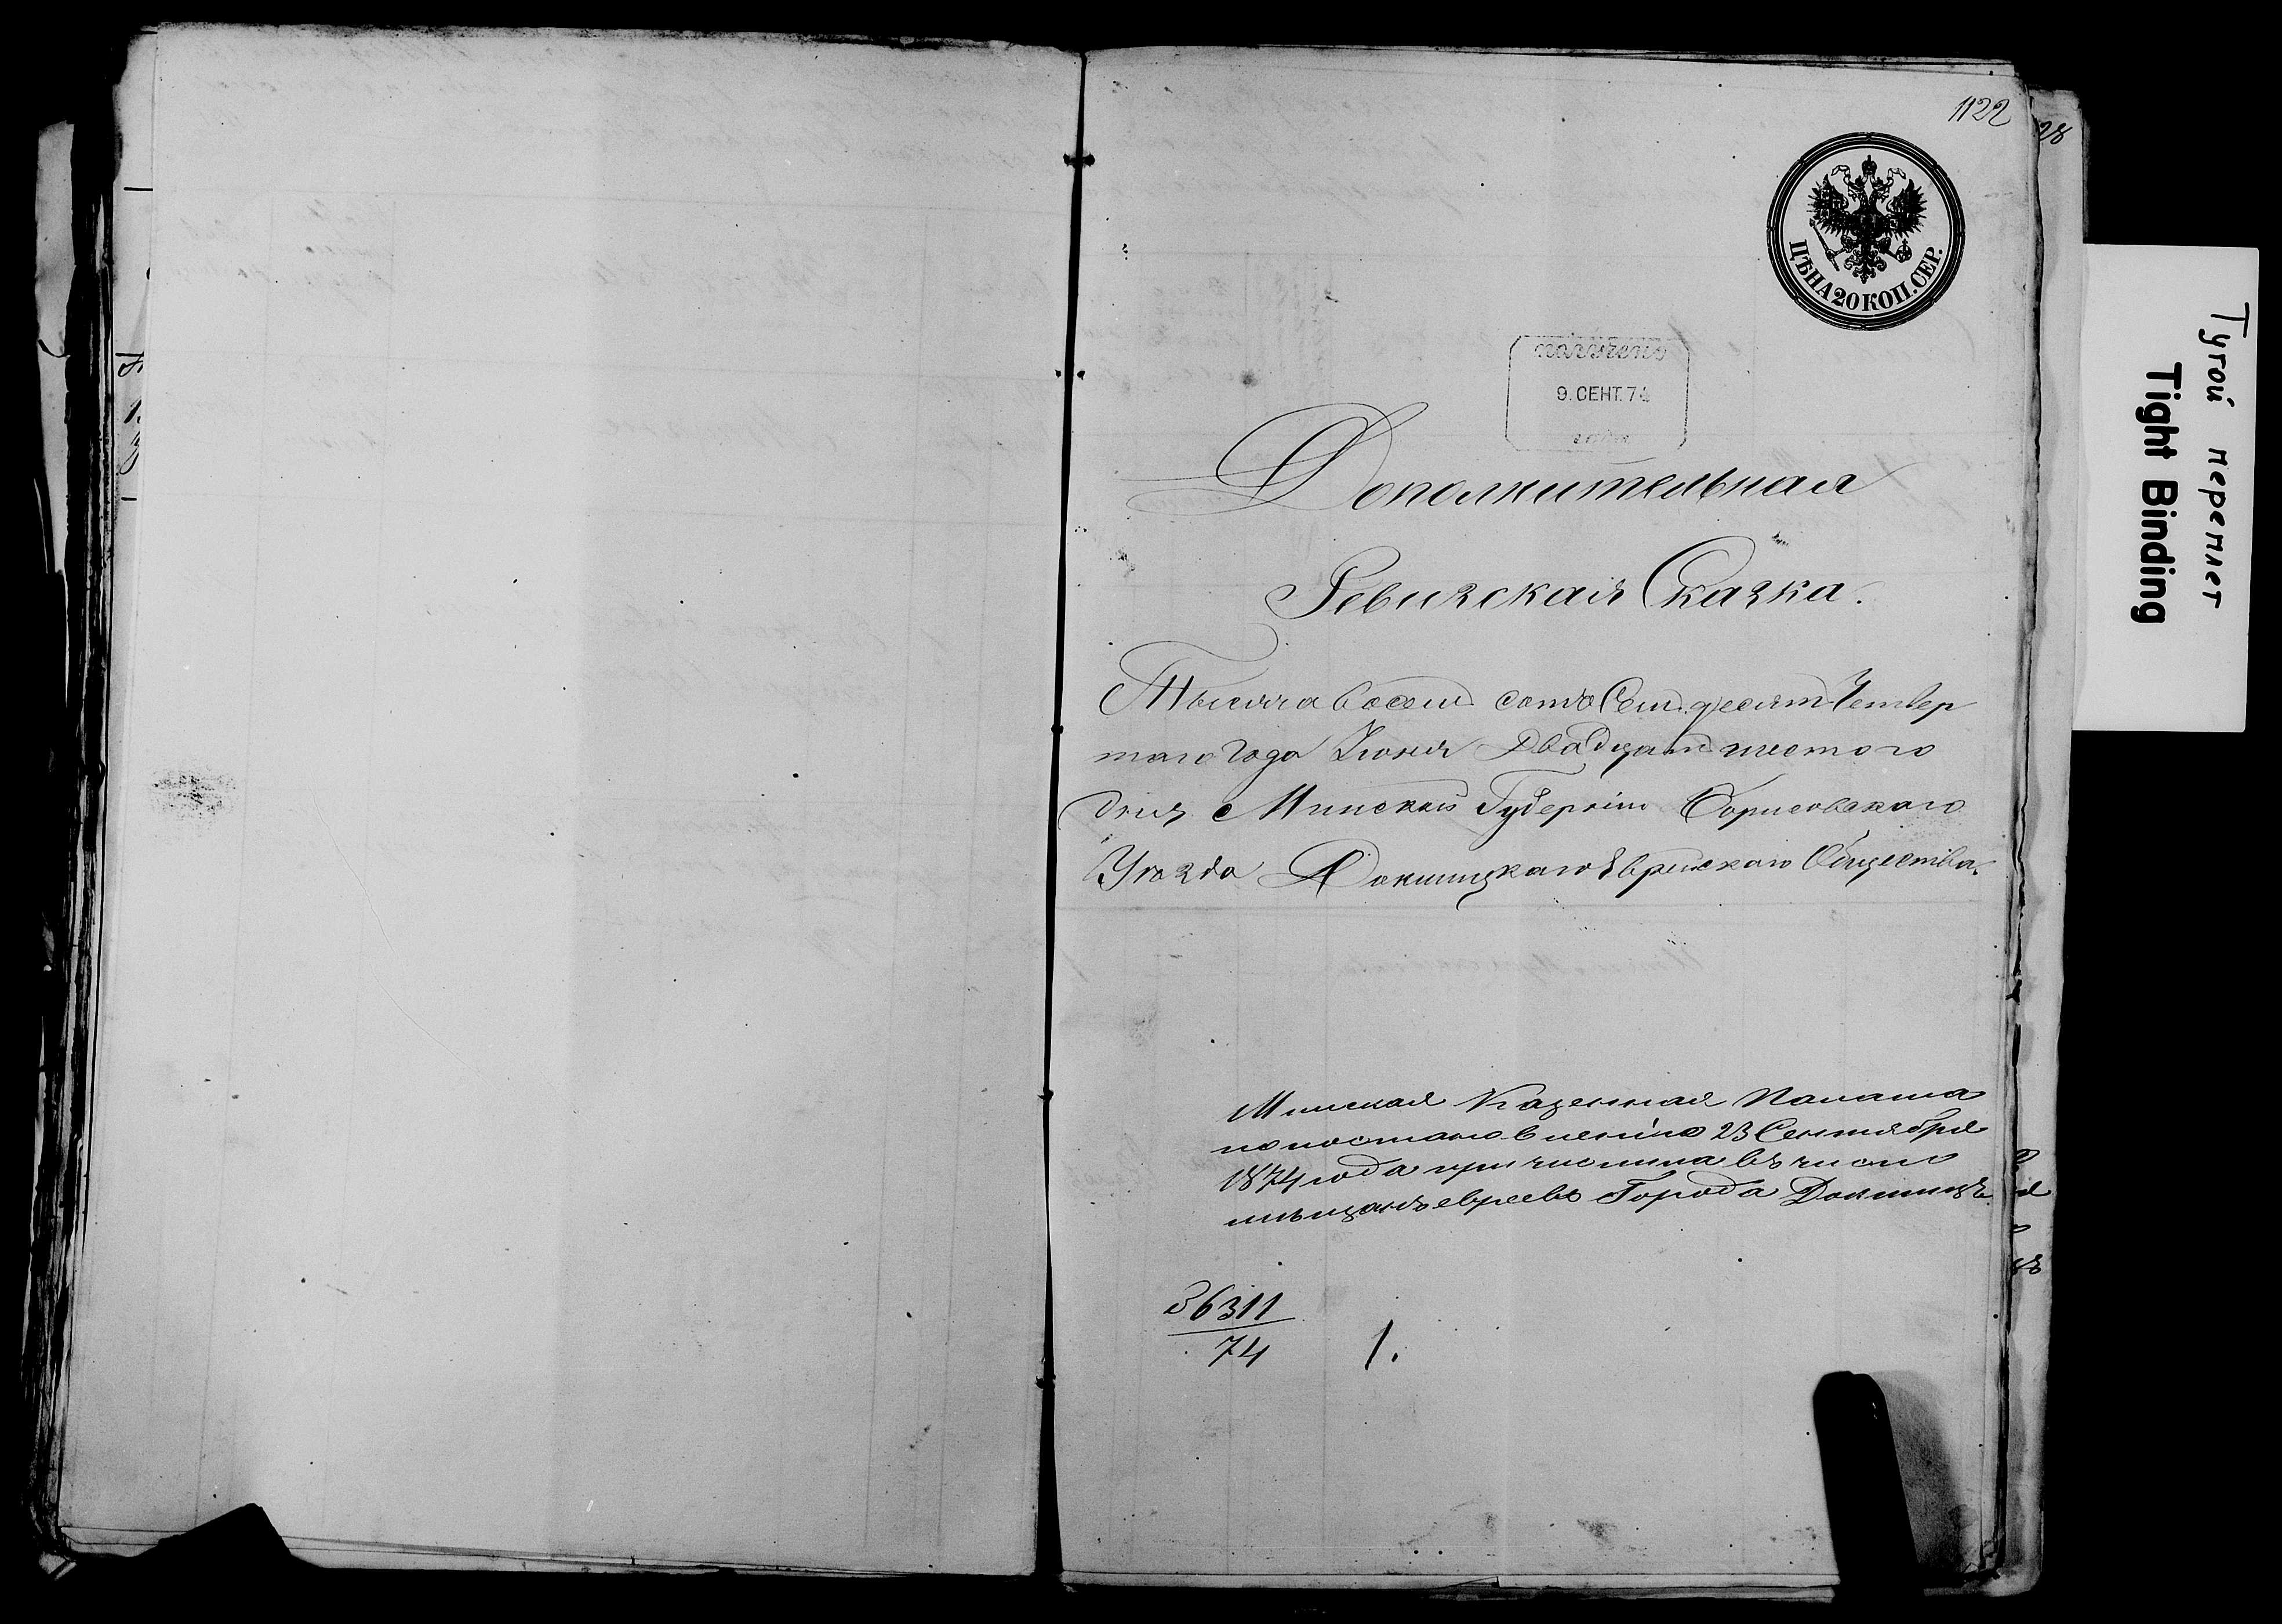 1122
28
ЦѢНА 20 КОП. СЕР.
получено
9. СЕНТ. 74
Дополнительная
Ревизская Сказка.
Тысяча восемь сотъ Семьдесятъ Четвер
таго Года Іюня Двадцать шестого
дня Минской Губерніи Борисовскаго
Уѣзда Докшицкаго Еврейскаго Общества.
Минская Казенная Палата
по постановленію 23 Сентября
1874 года причислила въ число
мѣщанъ евреевъ Города Докшицъ.
36311
74
1.
Тугой переплет
Tight Binding